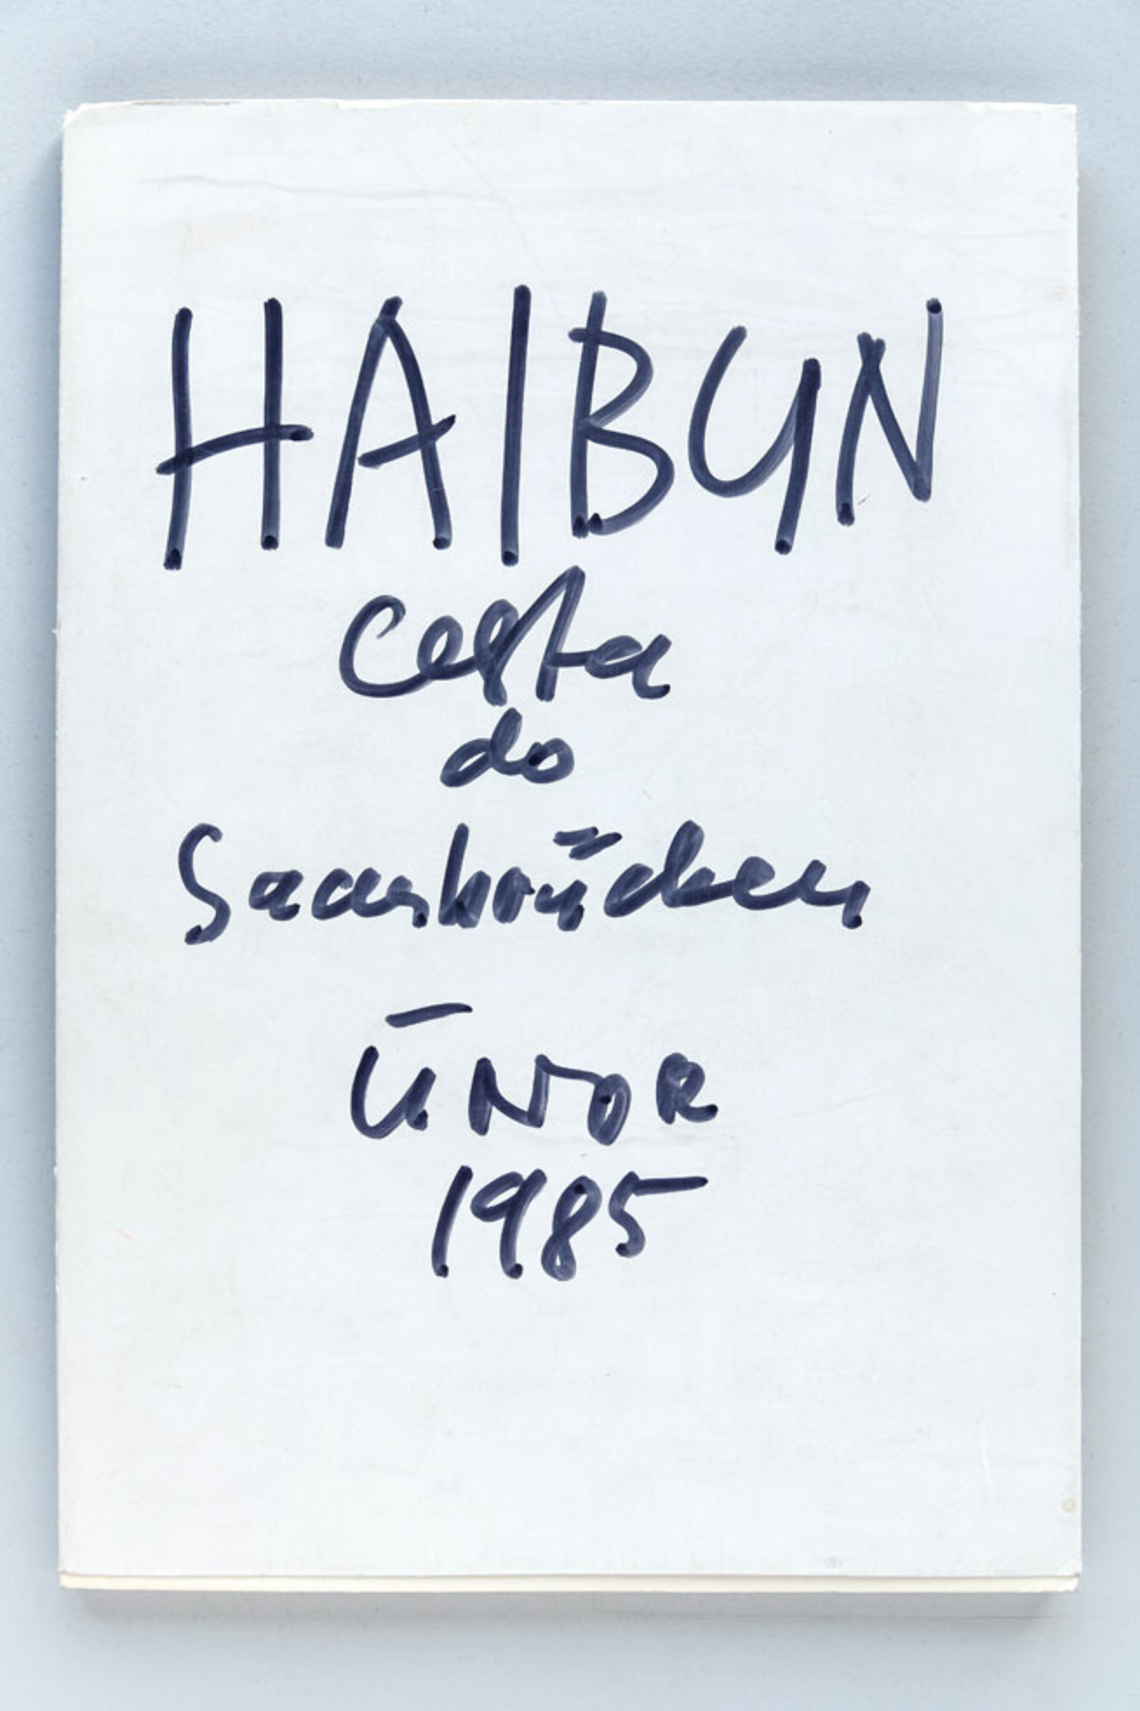 HAIBUN
cesta
do
Saarbrücken
ÚNOR
1985